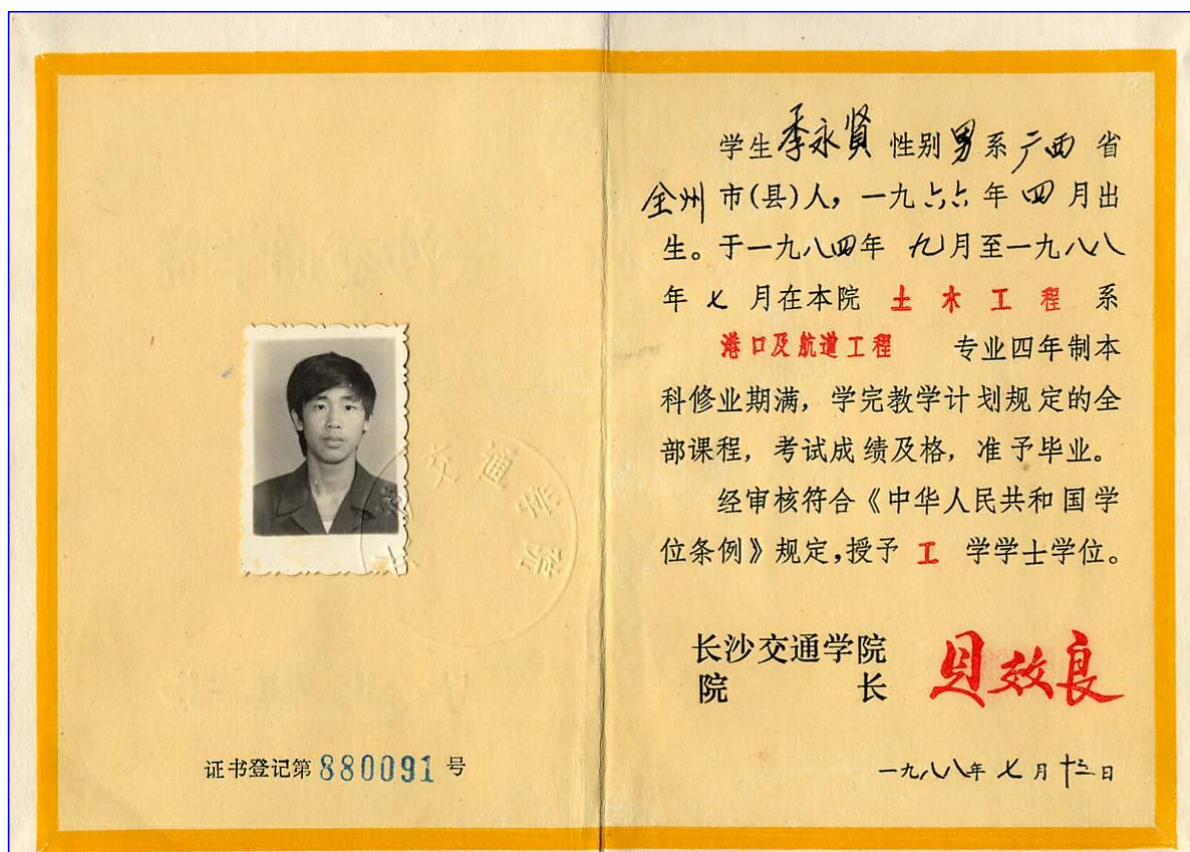 证书登记第880091号
学生季永贤 性别男系广西省
全州市(县)人，一九六六年四月出
生。于一九八四年 九月至一九八八
年七月在本院 土木工程 系
港口及航道工程 专业四年制本
科修业期满，学完教学计划规定的全
部课程，考试成绩及格，准予毕业。
经审核符合《中华人民共和国学
位条例》规定，授予 工 学学士学位。
长沙交通学院
院 长 贝效良
一九八八年七月十三日
交通学院